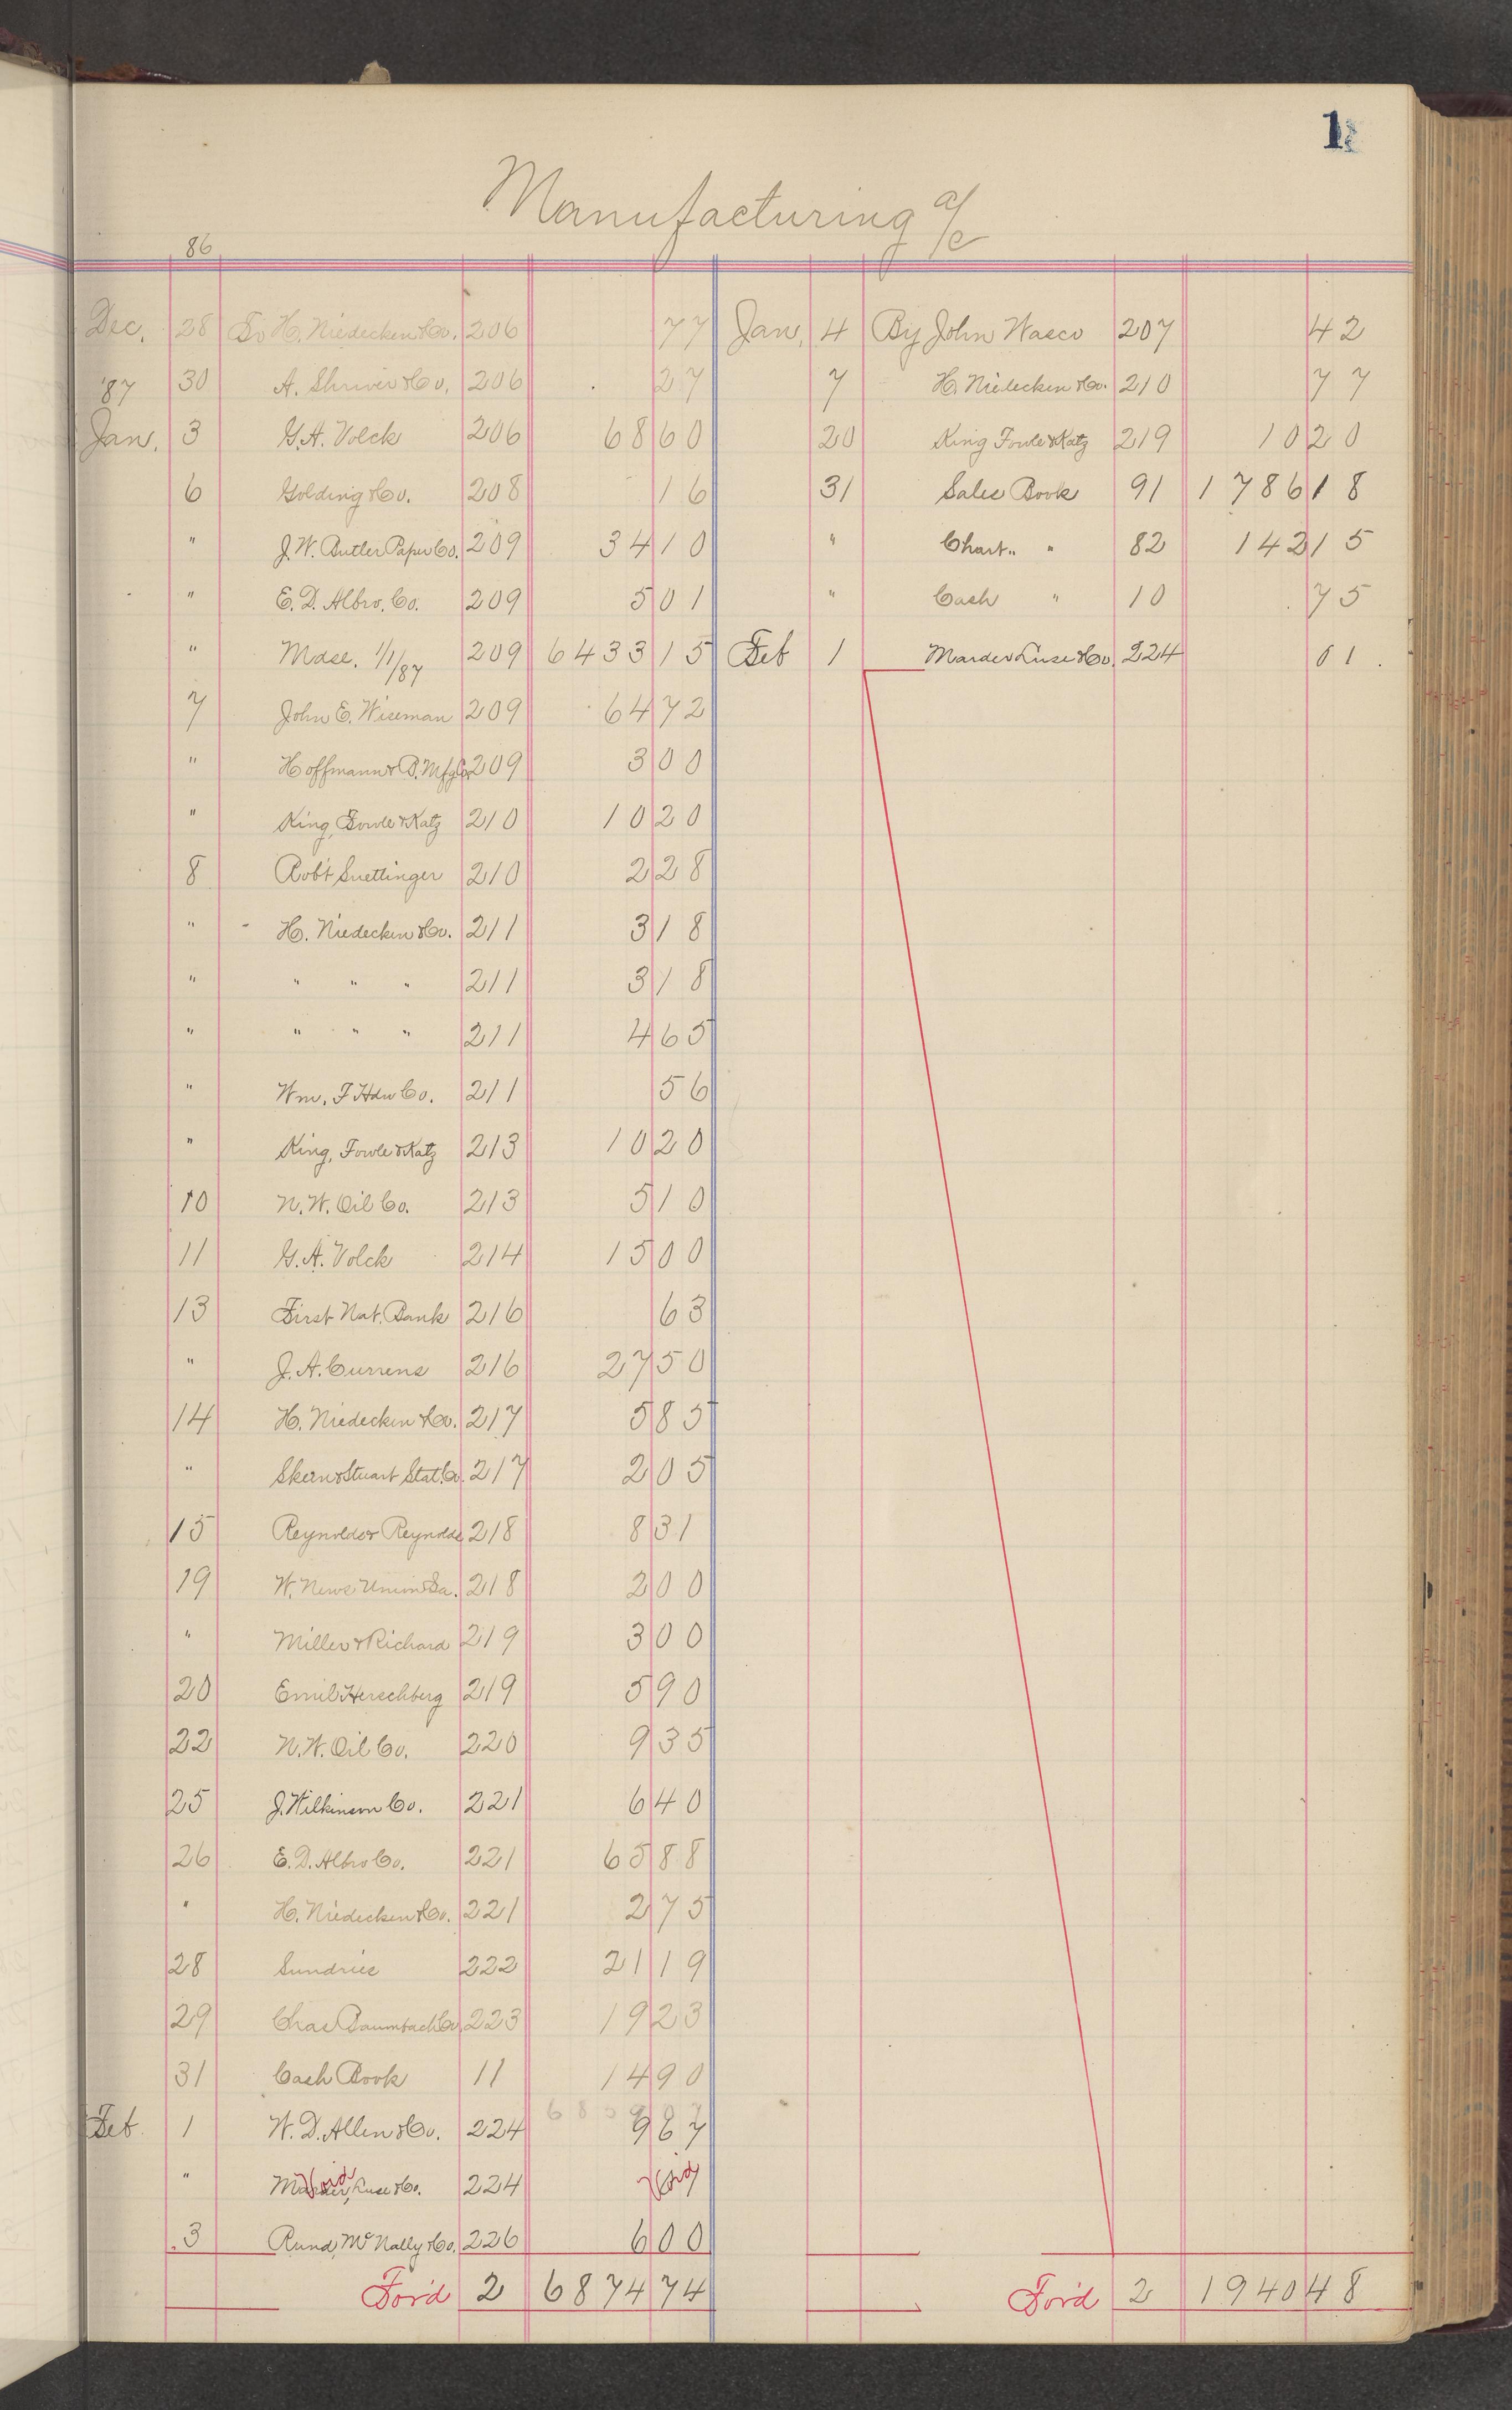 1
Manufacturing a/c
86
Dec. 28 To H. Niedecken & Co. 206 77 Jan. 4 By John Wasco 207 42
'87 30 A. Shriver & Co. 206 27 7 H. Niedecken & Co. 210 77
Jan. 3 G.A. Volck 206 68 60 20 King Fowle & Katz 219 10 20
6 Golding & Co. 208 16 31 Sales Book 91 1786 18
" J.W. Butler Paper Co. 209 34 10 " Chart. " 82 142 15
" E.D. Albro. Co. 209 5 01 " Cash " 10 75
" Mdse. 1/1/87 209 6433 15 Feb 1 Marder Luse & Co. 224 01
7 John E. Wiseman 209 64 72
" Hoffmann & B. Mfg Co. 209 3 00
" King, Fowle & Katz 210 10 20
8 Rob't Snettinger 210 2 28
" H. Niedecken & Co. 211 3 18
" " " " 211 3 18
" " " " 211 4 65
" Wm. F Hdw Co. 211 56
" King, Fowle & Katz 213 10 20
10 N.W. Oil Co. 213 5 10
11 G.A. Volck 214 15 00
13 First Nat. Bank 216 63
" J.A. Currens 216 27 50
14 H. Niedecken & Co. 217 5 85
" Skeen & Stuart Stat. Co. 217 2 05
15 Reynolds & Reynolds 218 8 31
19 W. News Union 218 2 00
" Miller & Richard 219 3 00
20 Emil Herschberg 219 5 90
22 N.W. Oil Co. 220 9 35
25 J. Wilkinson Co. 221 6 40
26 E.D. Albro Co. 221 65 88
" H. Niedecken & Co. 221 2 75
28 Sundries 222 21 19
29 Chas Baumbach Co. 223 19 23
31 Cash Book 11 14 90
Feb. 1 W.D. Allen & Co. 224 9 87
" Marder, Luse & Co. Void 224 Void
3 Rand, McNally & Co. 226 6 00
For'd 2 6874 74 For'd 2 1940 48